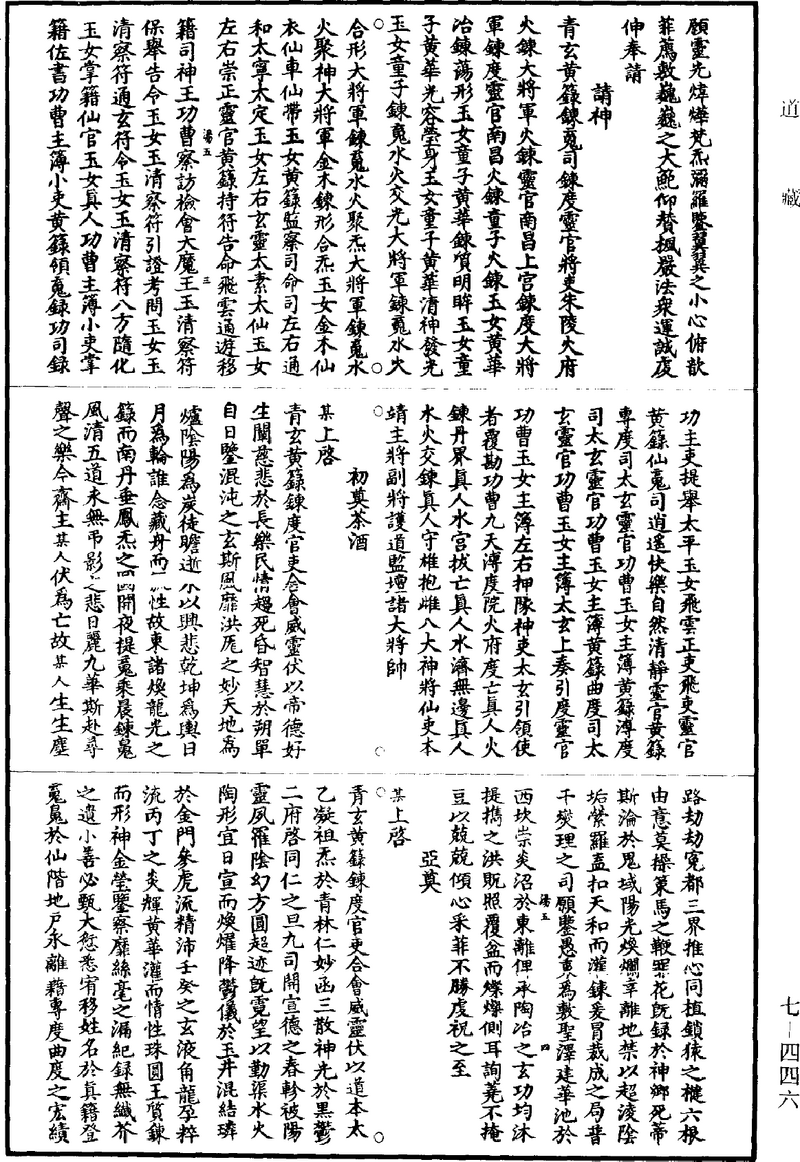 道藏
七－四四六
願靈光煒燁梵炁瀰羅鑒翼翼之小心俯歆
菲薦敷巍巍之大範仰贊楓嚴法衆運誠虔
伸奉請
請神
青玄黄籙鍊䰟司鍊度靈官將吏朱陵火府
火鍊大將軍火鍊靈官南昌上宫鍊度大將
軍鍊度靈官南昌火鍊童子火鍊玉女黄華
冶鍊蕩形玉女童子黄華鍊質明眸玉女童
子黄華光容瑩身玉女童子黄華清神發光
玉女童子鍊䰟水火交光大將軍鍊䰟水火
合形大將軍鍊䰟水火聚炁大將軍鍊䰟水
火聚神大將軍金木鍊形合炁玉女金木仙
衣仙車仙帶玉女黄籙監察司命司左右通
和太寧太定玉女左右玄靈太素太仙玉女
左右崇正靈官黄籙持符告命飛雲過遊移
籍司神王功曹察訪檢會大魔王玉清察符
湯五
三
保舉告令玉女玉清察符引證考問玉女玉
清察符通玄符令玉女玉清察符八方隨化
玉女掌籍仙官玉女真人功曹主簿小吏掌
籍佐書功曹主簿小吏黄籙領䰟録功司録
功主吏提舉太平玉女飛雲正吏飛吏靈官
黄籙仙䰟司逍遥快樂自然清静靈官黄籙
專度司太玄靈官功曹玉女主簿黄籙溥度
司太玄靈官功曹玉女主簿黄籙曲度司太
玄靈官功曹玉女主簿太玄上奏引度靈官
功曹玉女主簿左右押隊神吏太玄引領使
者覆勘功曹九天溥度院火府度亡真人火
鍊丹界真人水宫拔亡真人水濟無邊真人
水火交鍊真人守雄抱雌八大神將仙吏本
靖主將副將護道監壇諸大將帥
初奠茶酒
某上啓
青玄黄籙鍊度官吏合會威靈伏以帝德好
生闡慈悲於長樂民情超死昏智慧於朔單
自日鑿混沌之玄斯風靡洪厖之妙天地為
爐陰陽為炭徒瞻逝水以興悲乾坤為輿日
月為輪誰念藏舟而一流性故東諸煥龍光之
籙而南丹垂鳳炁之圖開夜提䰟乘晨鍊䰟
風清五道永無弔影之悲日麗九華斯赴尋
聲之樂今齋主某人伏為亡故某人生生塵
路劫劫寃都三界推心同植鎖猿之樾六根
由意莫操策馬之鞭罪花旣録於神鄉死蒂
斯淪於鬼域陽光煥爛幸離地禁以超淩陰
垢縈羅盍扣天和而灌鍊爰冒裁成之局普
干爕理之司願鑒愚衷為敷聖澤建華池於
西坎崇炎沼於東離俾承陶冶之玄功均沐
湯五
四
提攜之洪貺照覆盆而燦燦側耳詢蕘不掩
豆以兢兢傾心采菲不勝虔祝之至
亞奠
某上啓
青玄黄籙鍊度官吏合會威靈伏以道本太
乙凝祖炁於青林仁妙函三散神光於黒鬱
二府啓同仁之旦九司開宣德之春軫被陽
靈夙羅陰幻方圓超迹旣霓望以勤渠水火
陶形宜日宣而煥燿降鬱儀於玉井混結璘
於金門參虎流精沛壬癸之玄液角龍孕粹
流丙丁之炎輝黄華灌而情性珠圓王質鍊
而形神金瑩鑒察靡絲毫之漏紀録無纎芥
之遺小善必甄大愆悉宥移姓名於真籍登
䰟䰟於仙階地戸永離籍專度曲度之宏績